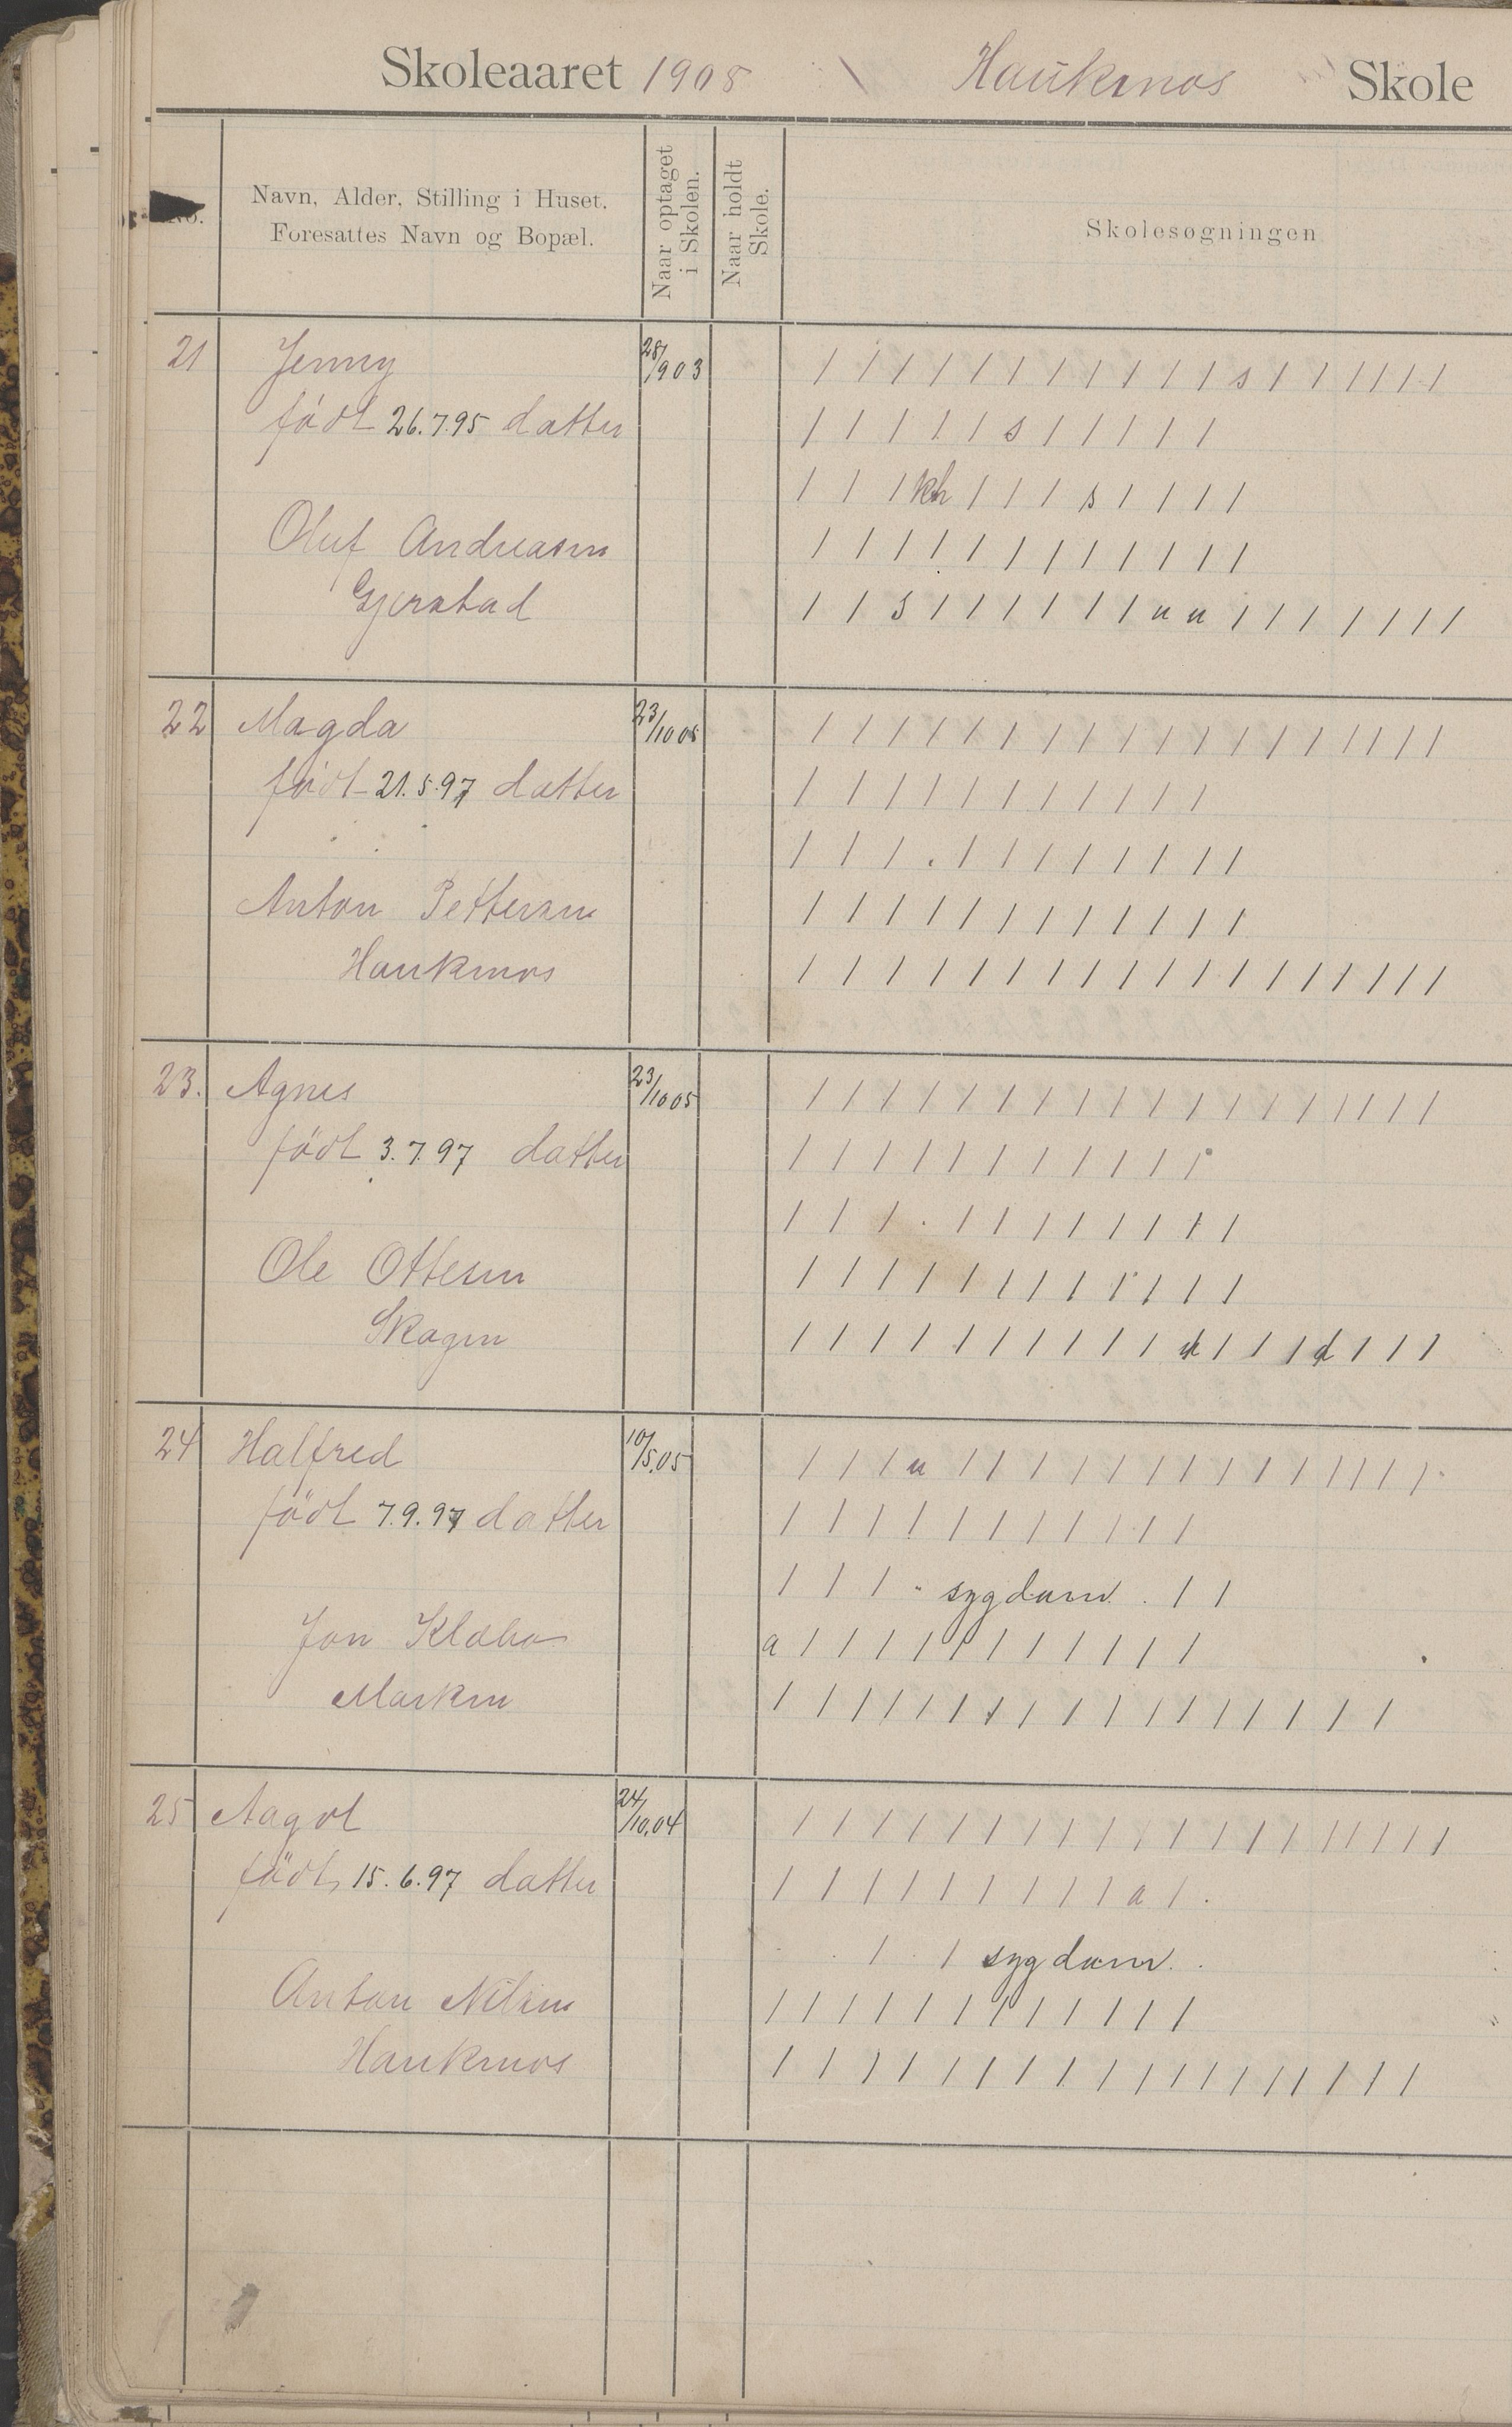 Skoleaaret 1908 Haukmos Skole
No.
Navn, Alder, Stilling i Huset.
Foresattes Navn og Bopæl.
Naar optaget
i Skolen.
Naar holdt
Skole.
Skolesøgningen
21 Jenny 28/903 / / / / / / / / / / / s / / / / / /
født 26.7.95 datter / / / / / s / / / / /
/ / / kh / / / s / / / /
Oluf Andreasen / / / / / / / / / / / /
Gjerstad / / s / / / / / / u u / / / / / / /
22 Magda 23/10 05 / / / / / / / / / / / / / / / / / /
født 21.5.97 datter / / / / / / / / / / /
/ / / . / / / / / / / /
Anton Pettersen / / / / / / / / / / / /
Haukmos / / / / / / / / / / / / / / / / / /
23. Agnes 23/10 05 / / / / / / / / / / / / / / / / / /
født 3.7.97 datter / / / / / / / / / / /
/ / / . / / / / / / / /
Ole Ottesen / / / / / / / / / / / /
Skagen / / / / / / / / / / d / / / d / / /
24 Halfred 10/5.05 / / / u / / / / / / / / / / / / / /
født 7.9.97 datter / / / / / / / / / / /
/ / / . sygdom . / /
Jon a / / / / / / / / / / /
Marken / / / / / / / / / / / / / / / / /
25 Aagot 24/10.04 / / / / / / / / / / / / / / / / / /
født 15.6.97 datter / / / / / / / / / a / .
/ / sygdom .
Anton Nilsen / / / / / / / / / / / /
Haukmos / / / / / / / / / / / / / / / / / /